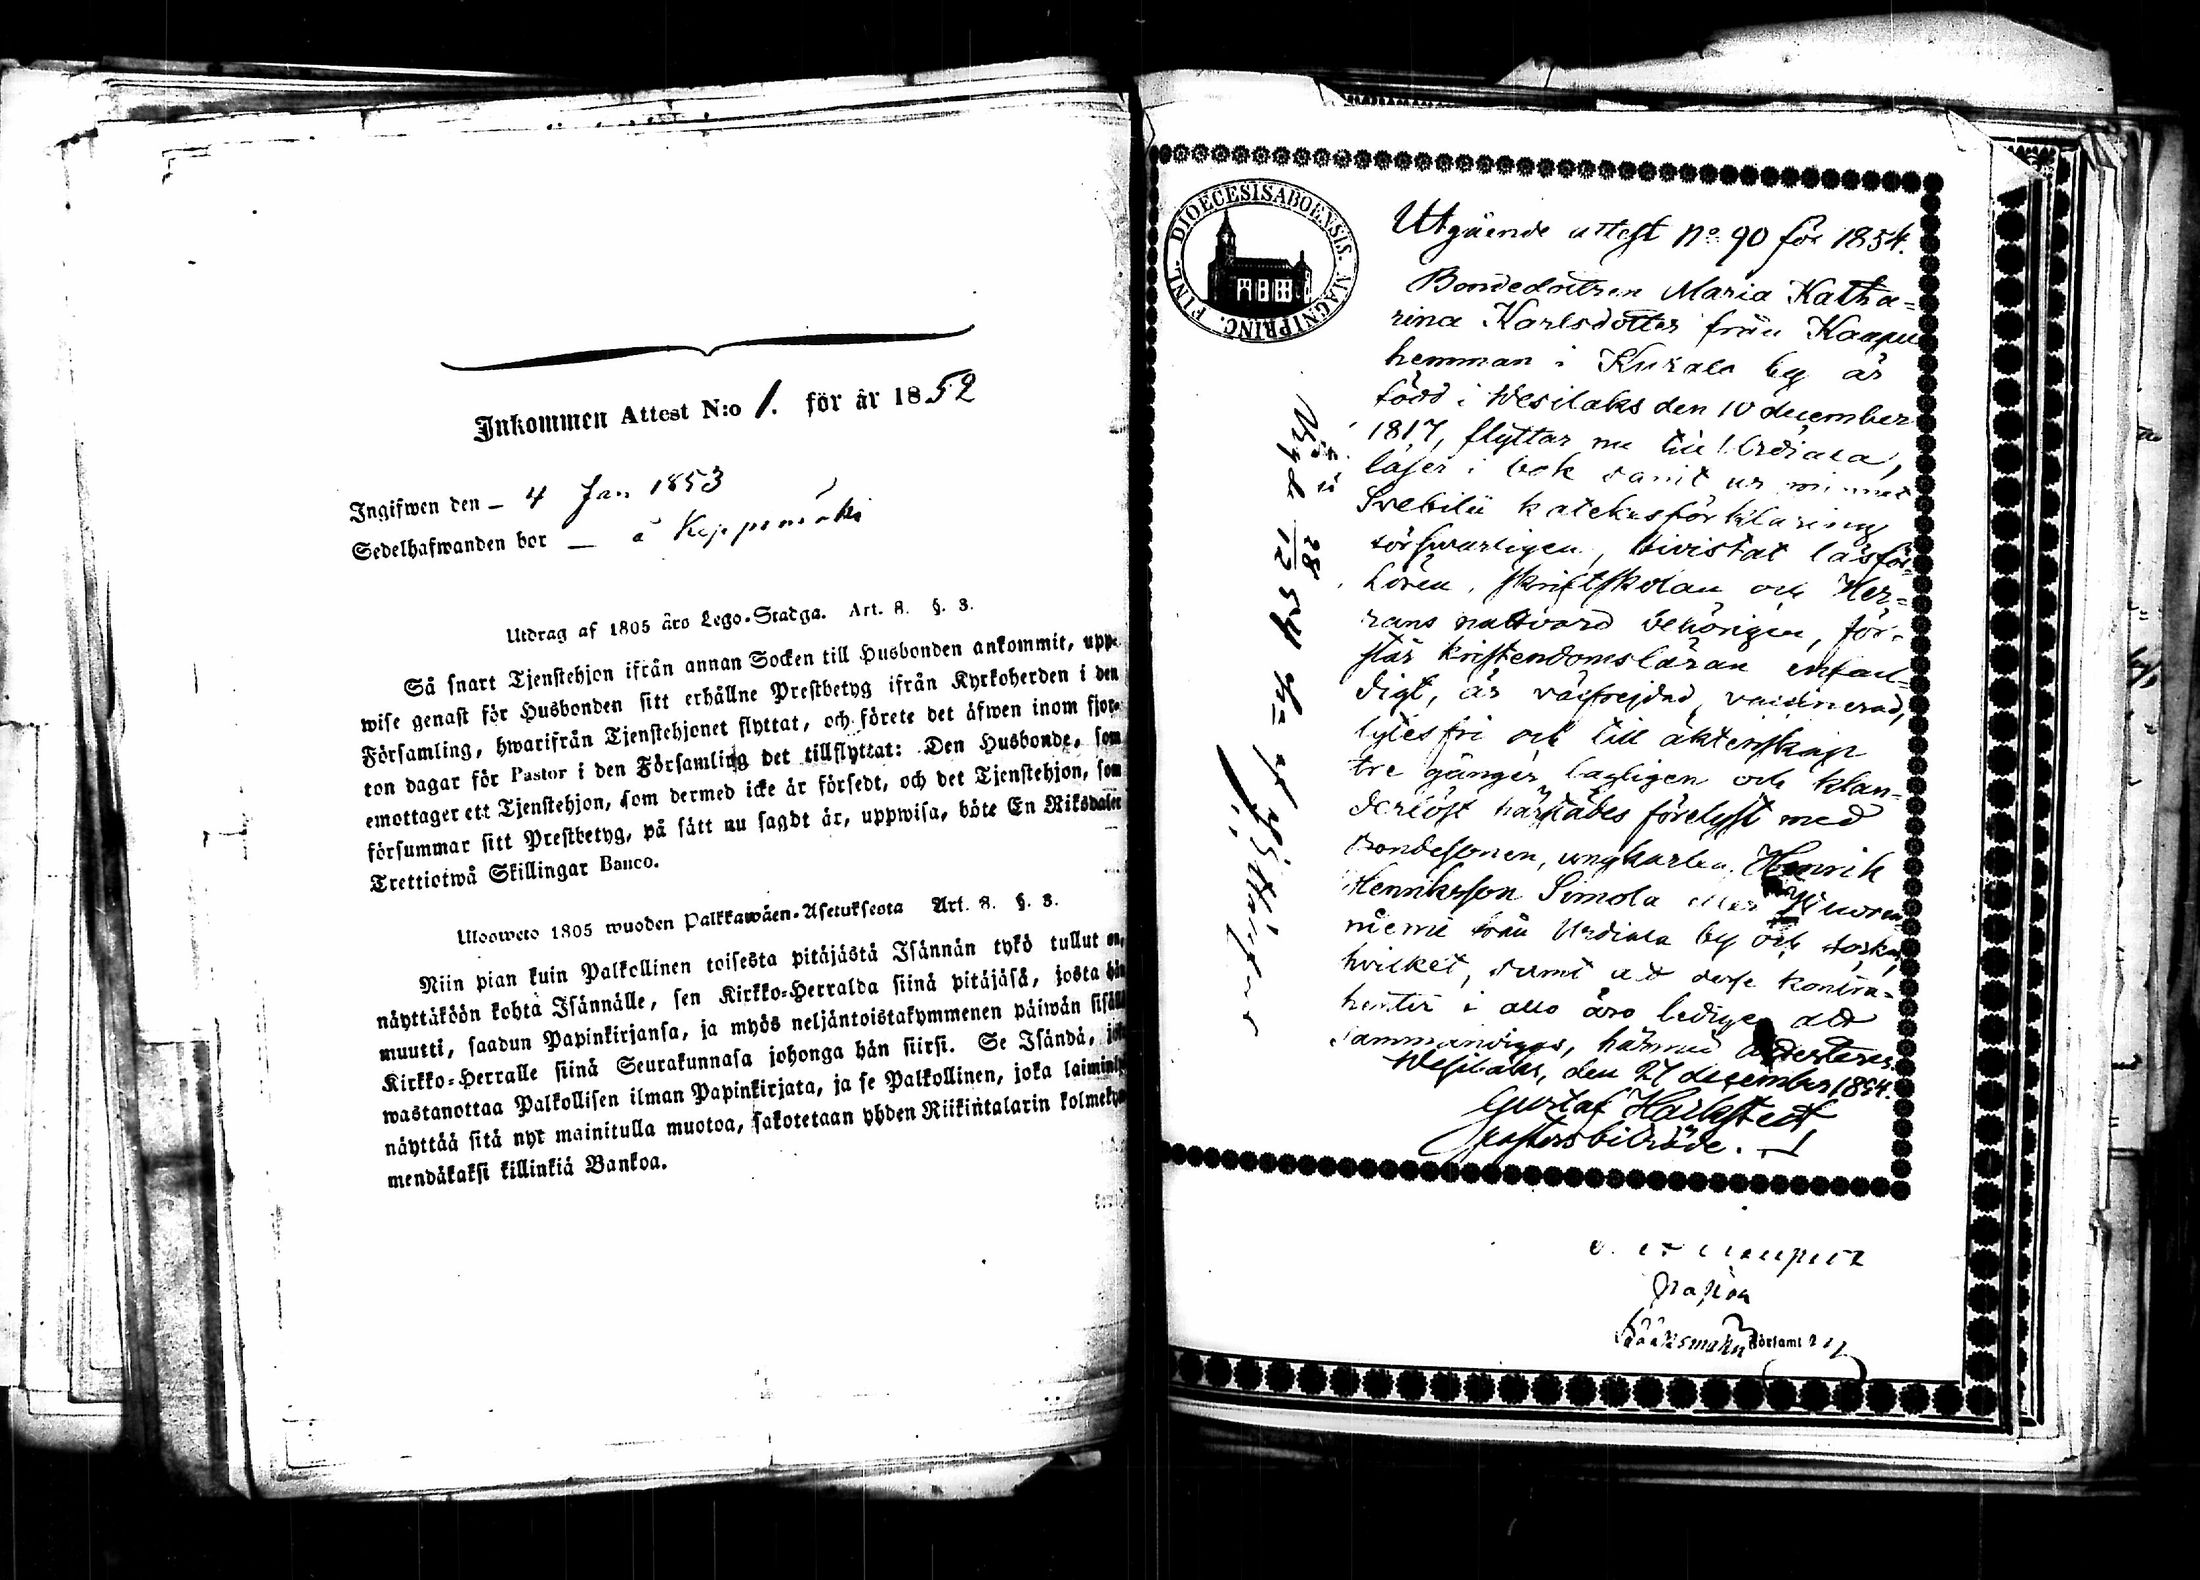 Inkommen Attest N:o 1. för år 1852
Ingifwen den – 4 Jan 1853
Sedelhafwanden bor – å
Utdrag af 1805 års Lego-Stadga. Art. 8. §. 3.
Så snart Tjenstehjon ifrån annan Socken till Husbonden ankommit, upp-
wise genast för Husbonden sitt erhållne Prestbetyg ifrån Kyrkoherden i den
Församling, hwarifrån Tjenstehjonet flyttat, och förete det äfwen inom fjor-
ton dagar för Pastor i den Församling det tillflyttat: Den Husbonde, som
emottager ett Tjenstehjon, som dermed icke är försedt, och det Tjenstehjon, som
försummar sitt Prestbetyg, på sätt nu sagdt är, uppwisa, böte En Riksdaler
Trettiotwå Skillingar Banco.
Uloosweto 1805 wuoden Palkkawäen-Asetuksesta Art. 8. §. 3.
Niin pian kuin Palkollinen toisesta pitäjästä Isännän tykö tullut on,
näyttäköön kohta Isännälle, sen Kirkko-Herralda siinä pitäjäsä, josta hän
muutti, saadun Papinkirjansa, ja myös neljäntoistakymmenen päiwän sisällä
Kirkko-Herralle siinä Seurakunnasa johonga hän siirsi. Se Isändä, joka
wastanottaa Palkollisen ilman Papinkirjata, ja se Palkollinen, joka
näyttää sitä nyt mainitulla muotoa, sakotetaan yhden Riikintalarin kolmeky-
mendäkaksi killinkiä Bankoa.
DIOECESIS ABOENSIS. MAGNI PRINC. FINL.
Utgående attest No 90 för 1854.
Bondedottren Maria Katha-
rina Karlsdotter från Kaapu
hemman i Kukala by är
född i Wesilaks den 10 december
1817, flyttar nu till Urdiala,
läser i bok samt ur minnet
Svebilii katekesförklaring
försvarligen, bivistat läsför-
hören, skriftskolan och Her-
rans nattvard behörigen, för-
står kristendomsläran enfal-
digt, är välfrejdad, vaccinerad,
lytesfri och till äktenskap
tre gånger lagligen och klan-
derlöst härstädes förelyst med
Bondesonen, ungkarlen Henrik
Henriksson Simola eller
niemi från Urdiala by och socken,
hvilket, samt att desse kontra-
henter i allo äro lediga att
sammanvigas, härmed attesteras.
Wesilaks, den 27 december 1854.
Gustaf Hallstedt,
pastorsbiträde.
Sääksmäki församling